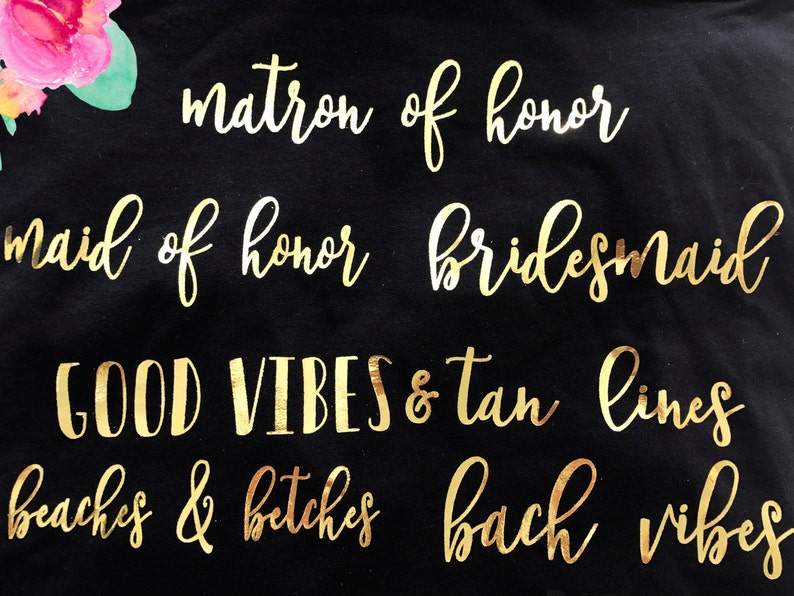 matron of honor
maid of honor bridesmaid
GOOD VIBES & tan lines
beaches & betches bach vibes